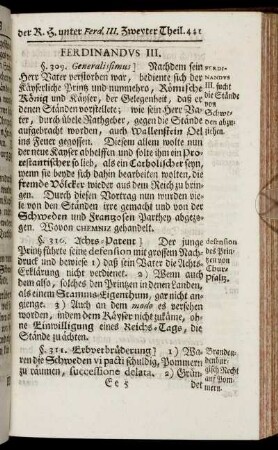 der R. H. unter Ferd. III. Zweyter Theil. 441
FERDINANDVS III.
§. 309. Generalissimus] Nachdem sein
Herr Vater verstorben war, bediente sich der
Käyserliche Printz und nunmehro, Römische
König und Käyser, der Gelegenheit, daß er
denen Ständen vorstellete; wie sein Herr Va-
ter, durch übele Rathgeber, gegen die Stände
aufgebracht worden, auch Wallenstein Oel
ins Feuer gegossen. Diesem allem wolte nun
der neue Käyser abhelffen und solte ihm ein Pro-
testantischer so lieb, als ein Catholischer seyn,
wenn sie beyde sich dahin bearbeiten wolten, die
fremde Völcker wieder aus dem Reich zu brin-
gen. Durch diesen Vortrag nun wurden vie-
le von den Ständen irre gemacht und von der
Schweden und Frantzosen Parthey abgezo-
gen. Wovon CHEMNIZ gehandelt.
FERDI-
NANDVS
III. sucht
die Stände
vor
Schwe-
den abzu-
ziehen.
§. 310. Achts-Patent] Der junge
Printz führte seine defension mit grossem Nach-
druck und bewieß 1) daß sein Vater die Achts-
Erklärung nicht verdienet. 2) Wenn auch
dem also, solches den Printzen in denen Landen,
als einem Stamms-Eigenthum, gar nicht an-
gienge. 3) Auch an dem modo es versehen
worden, indem dem Käyser nicht zukäme, oh-
ne Einwilligung eines Reichs-Tags, die
Stände zu ächten.
defension
des Prin-
tzen von
Chur-
Pfaltz.
§. 311. Erbverbrüderung] 1) Wa-
ren die Schweden vi pacti schuldig, Pommern
zu räumen, successione delata. 2) Grün-
Branden-
denbur-
gisch Recht
auf Pom-
mern.
Ee 5
det